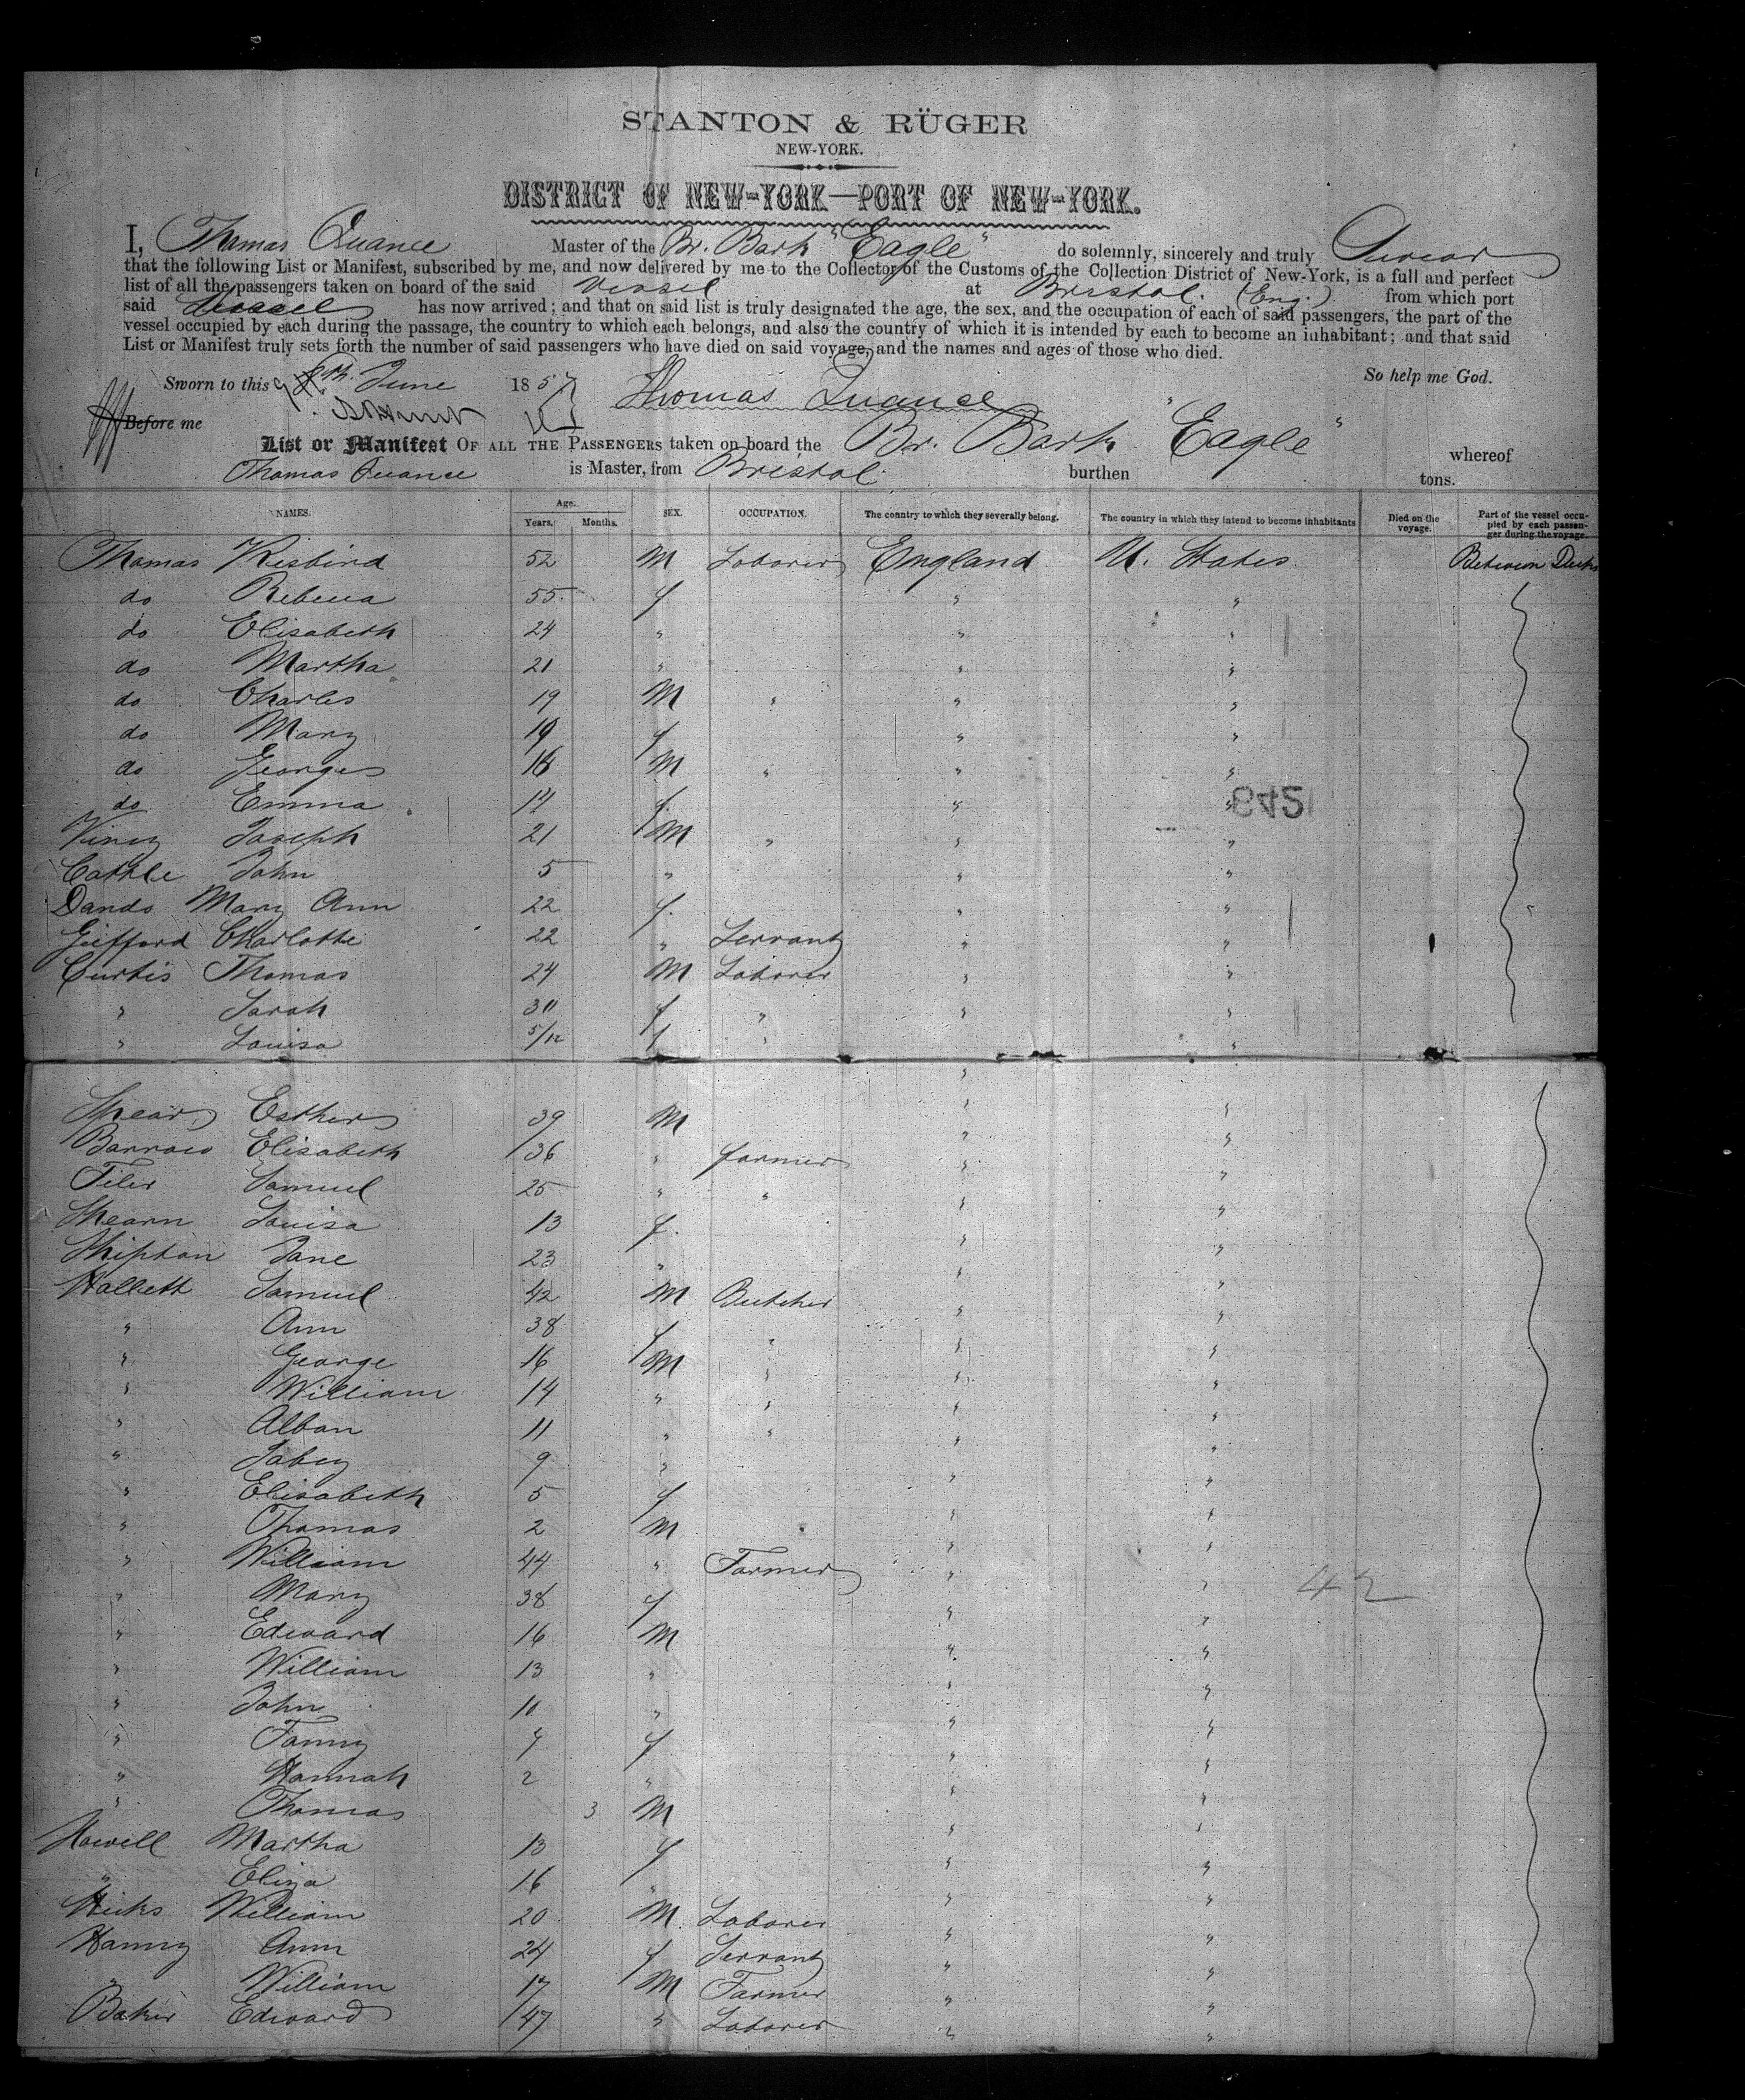 STANTON & RÜGER
NEW-YORK.
DISTRICT OF NEW-YORK—PORT OF NEW-YORK.
I, Thomas Quance Master of the Br. Bark "Eagle" do solemnly, sincerely and truly Swear
that the following List or Manifest, subscribed by me, and now delivered by me to the Collector of the Customs of the Collection District of New-York, is a full and perfect
list of all the passengers taken on board of the said Vessel at Bristol. (Eng.) from which port
said Vessel has now arrived; and that on said list is truly designated the age, the sex, and the occupation of each of said passengers, the part of the
vessel occupied by each during the passage, the country to which each belongs, and also the country of which it is intended by each to become an inhabitant; and that said
List or Manifest truly sets forth the number of said passengers who have died on said voyage, and the names and ages of those who died.
Sworn to this June 1857 Thomas Quance So help me God.
Before me
List or Manifest OF ALL THE PASSENGERS taken on board the Br. Bark "Eagle" whereof
Thomas Quance is Master, from Bristol burthen tons.
NAMES. Age. Years. Months. SEX. OCCUPATION. The country to which they severally belong. The country in which they intend to become inhabitants Died on the voyage. Part of the vessel occupied by each passenger during the voyage.
Thomas Kisbird 52 M Laborer England U. States Between Decks
do Rebecca 55 f " "
do Elisabeth 24 " " "
do Martha 21 " " "
do Charles 19 M " " "
do Mary 19 f " "
do George 16 M " " "
do Emma 14 f " "
842
Viney Joseph 21 M " " "
Cattle John 5 " " "
Dando Mary Ann 22 f. " "
Gifford Charlotte 22 " Servant " "
Curtis Thomas 24 M Laborer " "
" Sarah 30 f " " "
" Louisa 5/12 f " "
Shear Esther 39 M " "
Barrow Elisabeth 36 " farmer " "
Tiler Samuel 25 " " " "
Shearn Louisa 13 f. " "
Shipton Jane 23 " " "
Hallett Samuel 42 M Butcher " "
" Ann 38 f " " "
" George 16 M " " "
" William 14 " " " "
" Alban 11 " " " "
" Jabez 9 " " "
" Elisabeth 5 f " "
" Thomas 2 M " "
" William 44 " Farmer " "
42
" Mary 38 f " "
" Edward 16 M " "
" William 13 " " "
" John 10 " " "
" Fanny 7 f " "
" Hannah 2 " " "
" Thomas 3 M " "
Howell Martha 13 f " "
" Eliza 16 " " "
Hicks William 20 M. Laborer " "
Hanny Ann 24 f Servant " "
" William 17 M Farmer " "
Baker Edward 47 " Laborer " "